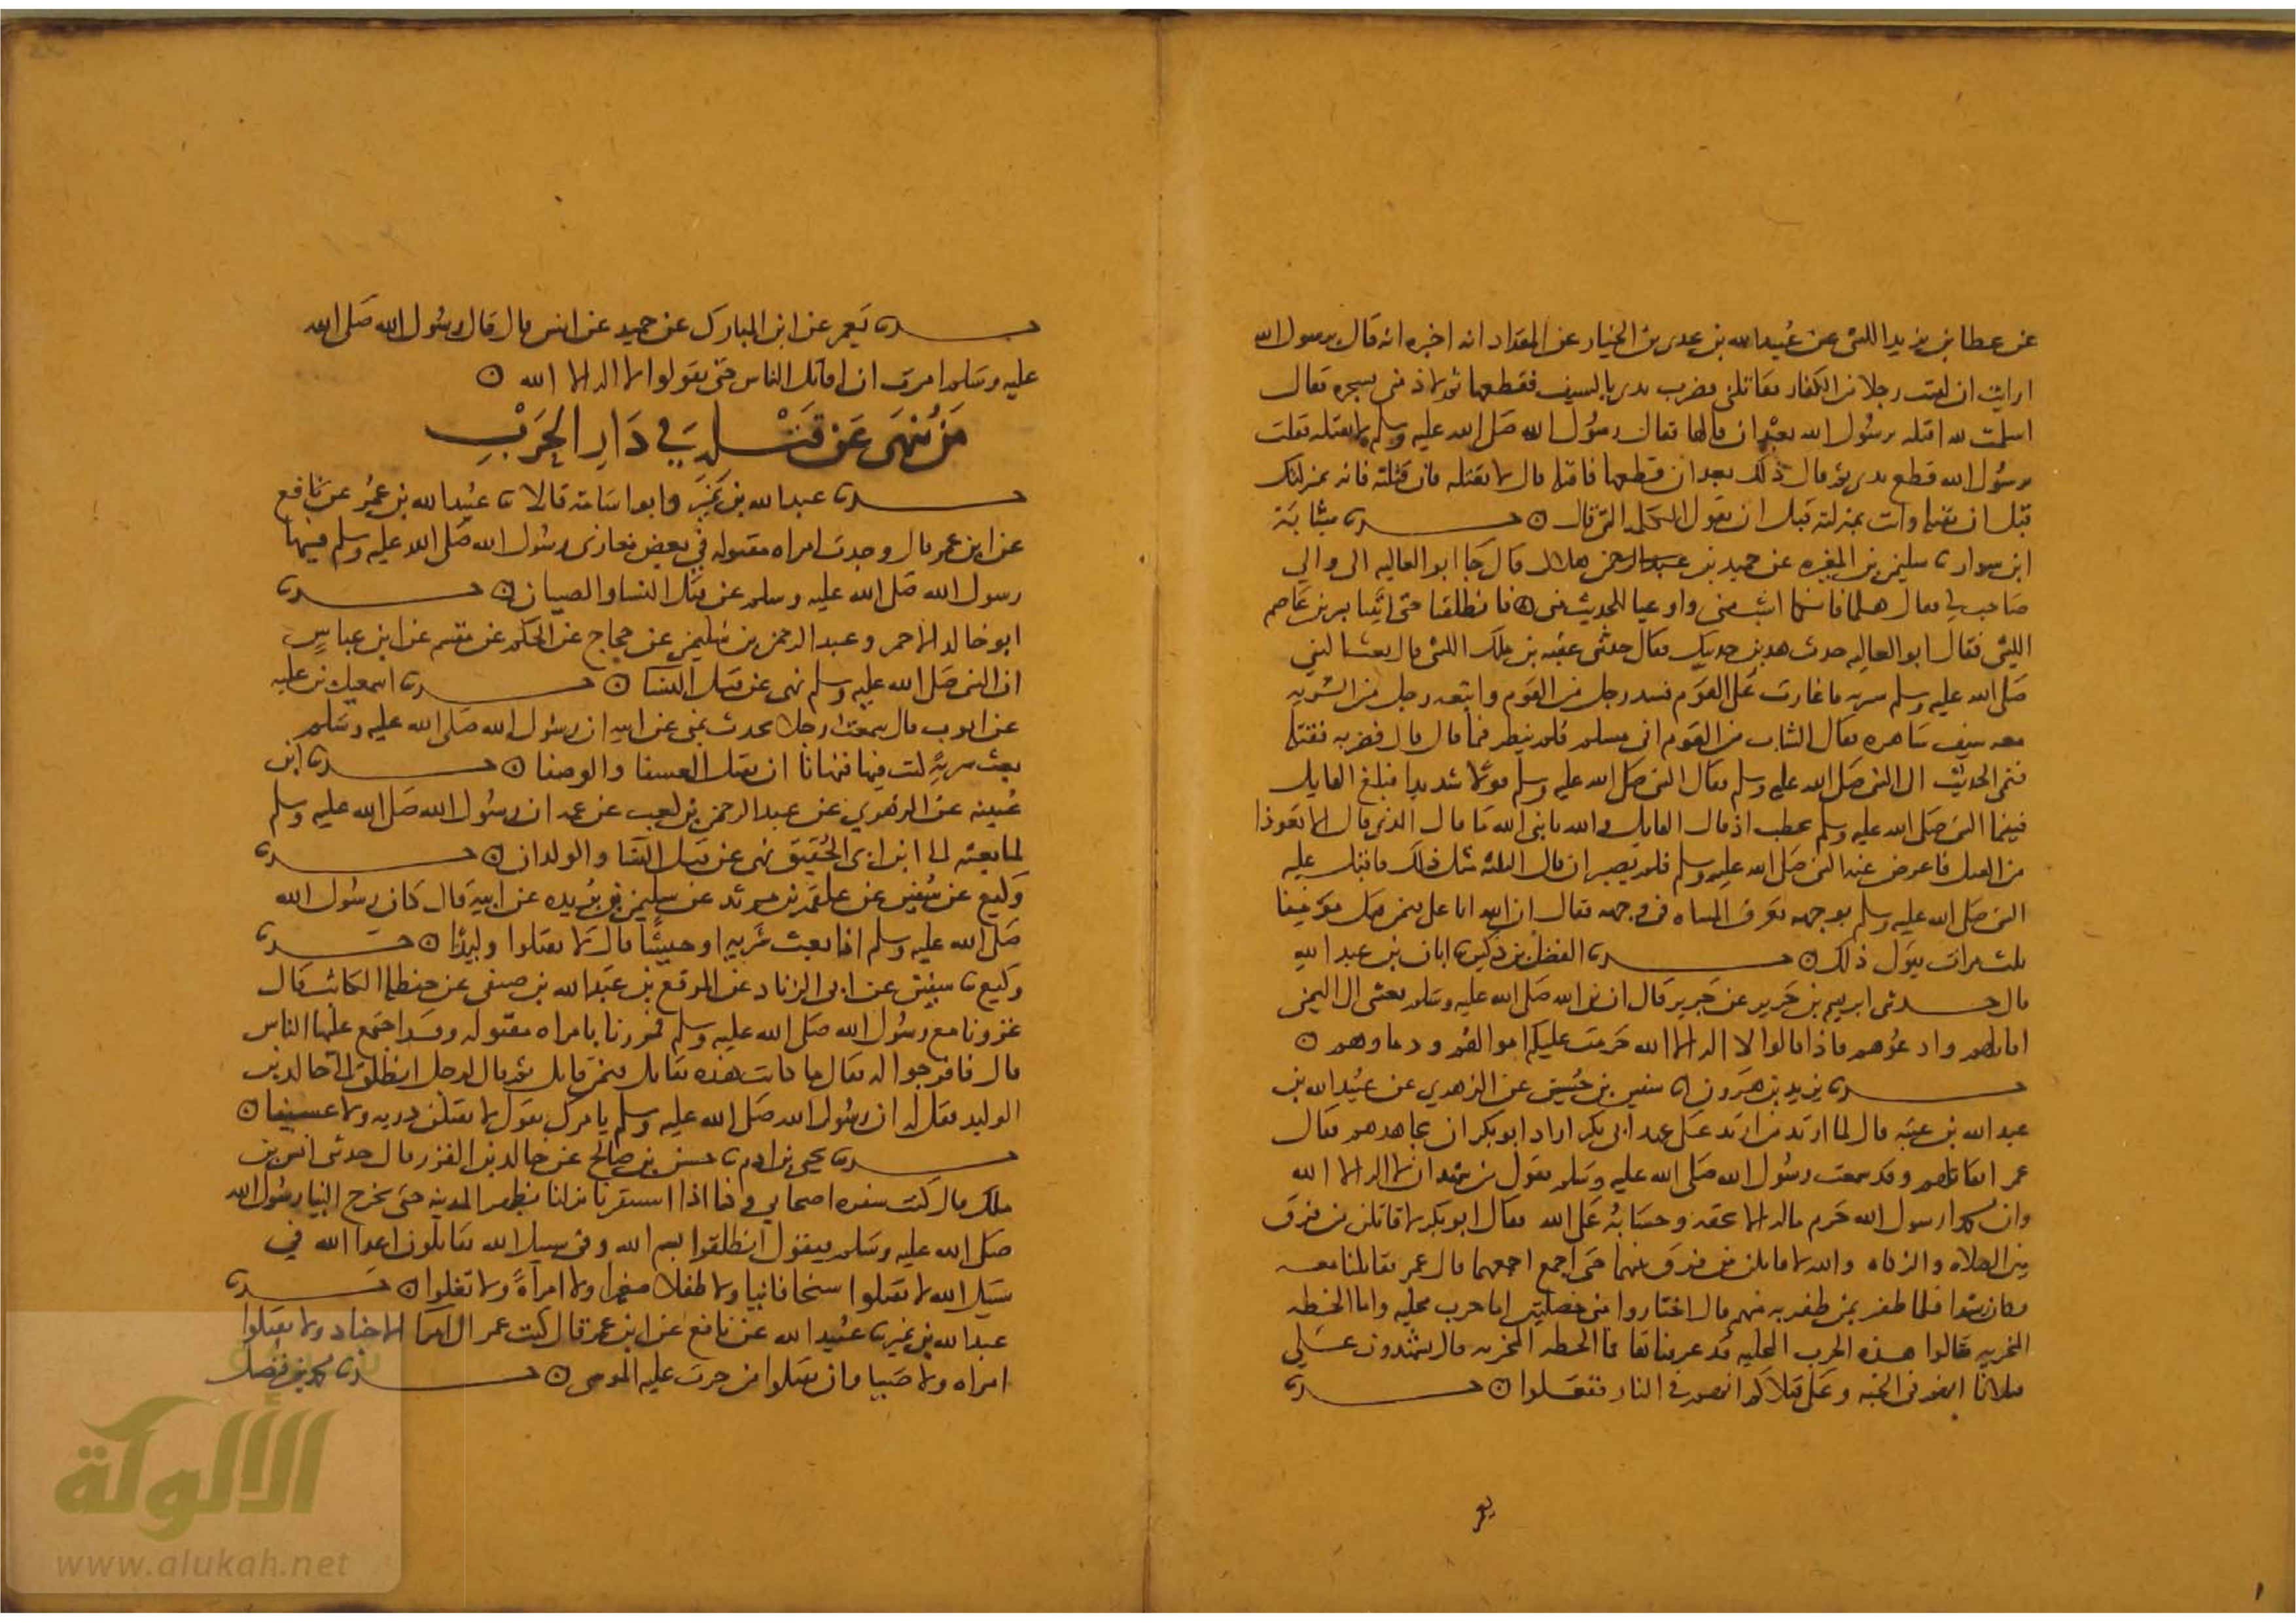 عن عطا بن يزيد الليثى عن عُبيد الله بن عدى بن الخيار عن المقداد انه اخبره انه قال يرسول الله
ارايت ان لقيت رجلا من الكفار فقاتلنى فضرب يدى بالسيف فقطعها ثم لاذ منى بشجره فقال
اسلمت لله اقتله يرسُول الله بعد ان قالها فقال رسُول الله صَلى الله عليه وسلم لا تقتله فقلت
يرسُول الله قطع يدى ثم قال ذلك بعد ان قطعها فاقتله قال لا تقتله فان قتلته فانه بمنزلتك
قبل ان تقتله وانت بمنزلته قبل ان يقول الكلمه التى قال ⊙ حدثنا شبابَة
ابن سوار ثنا سليمن بن المغيره عن حميد بن هلال قال جا ابو العاليه الى والى
صَاحب لى فقال هلما فانكما اشب منى واوعيا للحديث منى ⊙ فانطلقنا حتى اتينا بشر بن عَاصم
الليثى فقال ابو العاليه حدث هذين حديثك فقال حدثنى عقبه بن ملك الليثى قال بعث النبى
صَلى الله عليه وسلم سريه فاغارت عَلى القوم فشد رجل من القوم واتبعه رجل من السريه
معه سيف شاهره فقال الشاد من القوم انى مسلم فلم ينظر فيما قال قال فضربه فقتله
فنمى الحديث الى النبى صَلى الله عليه وسلم فقال النبى صَلى الله عليه وسلم قولا شديدا فبلغ القاتل
فبينما النبى صَلى الله عليه وسلم يخطب اذ قال القاتل والله يا نبى الله مَا قال الذى قال الا تعوذا
من القتل فاعرض عنه النبى صَلى الله عليه وسلم فلم يصبر ان قال الثالثه مثل ذلك فاقبل عليه
النبى صَلى الله عليه وسلم بوجهه تعرف المساه فى وجهه فقال ان الله ابا على فيمن قتل مؤمنا
ثلث مرات يقول ذلك ⊙ حدثنا الفضل بن دكين ثنا ابان بن عبد الله
قال حدثنى ابرهيم بن جَرير عن جَرير قال ان نبى الله صَلى الله عليه وسلم بعثنى الى اليمن
اقاتلهم وادعُوهم فاذا قالوا لا اله الا الله حَرمت عليكم اموالهم ودماوهم ⊙
حدثنا يزيد بن هَرون انا سفين بن حُسين عن الزهدي عن عبيد الله بن
عبد الله بن عتبه قال لما ارتد من ارتد عَلى عهد ابى بكر اراد ابو بكر ان يجاهدهم فقال
عمر اتقاتلهم وقد سمعت رسُول الله صَلى الله عليه وسَلم يقول من شهد ان لا اله الا الله
وان محمدا رسول الله حَرم ماله الا بحقه وحسَابه عَلى الله فقال ابو بكر لاقاتلن من فرق
بين الصلاه والزكاه والله لاقاتلن من فرق بينهما حَتى اجمعهما قال عمر فقاتلنا معه
فكان رشدا فلما ظفر بمن ظفر به منهم قال اختاروا منى خصلتين اما حرب مجليه واما الخطه
المخزيه فقالوا هذه الحرب المجليه قد عرفناها فما الخطه المخزيه قال تشهدون عَلى
قتلانا انهم فى الجنه وعَلى قتلاكم انهم فى النار ففعَلوا ⊙ حدثنا
يعمر
حدثنا يَعمر عن ابن المبارك عن حميد عن انس قال قال رسُول الله صَلى الله
عليه وسَلم امرت ان اقاتل الناس حَتى يقولوا لا اله الا الله ⊙
مَن يُنهَى عَن قَتْلِهِ فِي دَارِ الحَرْبِ
حدثنا عبد الله بن نمَير وابو اسَامة قالا ثنا عبيد الله بن عمُر عن نَافع
عن ابن عمر قال وجدت امراه مقتوله فى بعض مغازى رسُول الله صَلى الله عليه وسلم فنهى
رسول الله صَلى الله عليه وسلم عن قتل النسا والصبيان ⊙ حدثنا
ابو خالد الاحمر وعبد الرحمن بن سُليمن عن حجاج عن الحكم عن مقسم عن ابن عباسٍ
ان النبى صَلى الله عليه وسلم نهى عن قتل النسَا ⊙ حدثنا اسمعيل بن عليه
عن ايوب قال سمعت رجلا يحدث بمنى عن ابيه ان رسُول الله صَلى الله عليه وسَلم
بعث سريةً كنت فيها فنهانا ان نقتل العسفا والوصفا ⊙ حدثنا ابن
عُيينه عن الزهدي عن عبد الرحمن بن كعب عن عمه ان رسُول الله صَلى الله عليه وسلم
لما بعثه الى ابن ابى الحُقيق نهى عن قتل النسَا والولدان ⊙ حدثنا
وَكيع عن سُفين عن علقمة بن مرثد عن سليمن بن بُريده عن ابيه قال كان رسُول الله
صَلى الله عليه وسلم اذا بعث سَريه او جيشًا قال لا تقتلوا وليدًا ⊙ حدثنا
وكيع ثنا سفين عن ابى الزناد عن المرقع بن عَبد الله بن صيفى عن حنظله الكاتب قال
غزونا مع رسُول الله صَلى الله عليه وسلم فمررنا بامراه مقتوله وقد اجتمع عليها الناس
قال فافرجوا له فقال ما كانت هذه تقاتل فيمن يقاتل ثم قال لرجل انطلق الى خالد بن
الوليد فقل له ان رسُول الله صَلى الله عليه وسلم يامرك يقول لا تقتلن ذريه ولا عسيفا ⊙
حدثنا يحيى بن ادم ثنا حسن بن صالح عن خالد بن الفزر قال حدثنى انس بن
ملك قال كنت سفره اصحابى وكنا اذا استنفرنا نزلنا بظهر المدينه حَتى يخرج الينا رسُول الله
صَلى الله عليه وسَلم فيقول انطلقوا بسم الله وفى سبيل الله تقاتلون اعدا الله فى
سَبيل الله لا تقتلوا شيخا فانيا ولا طفلا صغيرا ولا امرأةً ولا تغلوا ⊙ حدثنا
عبد الله بن نمير ثنا عبيد الله عن نافع عن ابن عمر قال كتب عمر الى امرا الاجناد ولا تقتلوا
امراه ولا صَبيا وان تقتلوا من جرت عليه الموسى ⊙ حدثنا محمد بن فضيل
الألوكة
www.alukah.net